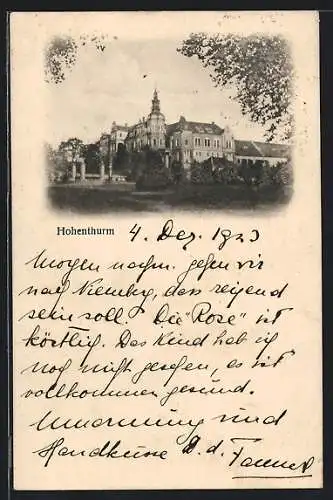 Hohenthurm
4. Dez. 1923
Morgen nachm. gehen wir
nach Niemberg, das reizend
sein soll. Die "Rose" ist
köstlich. Das Kind hab ich
noch nicht gesehen, es ist
vollkommen gesund.
Umarmung und
Handküsse D. d.